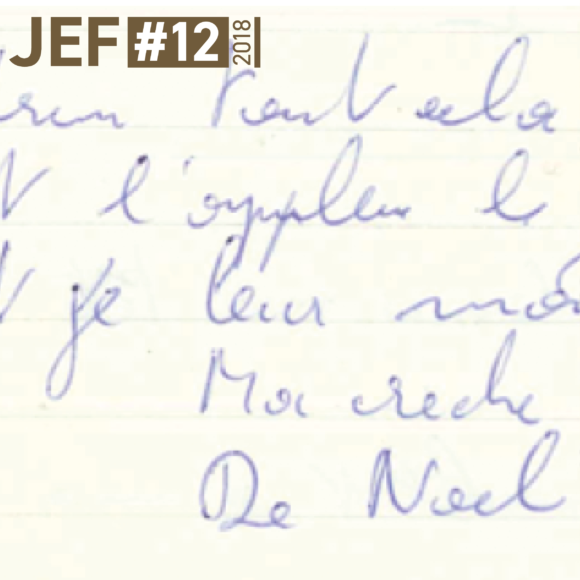 JEF #12 2018
tout cela
l'appleu le
je leur
Ma creche
De Noel